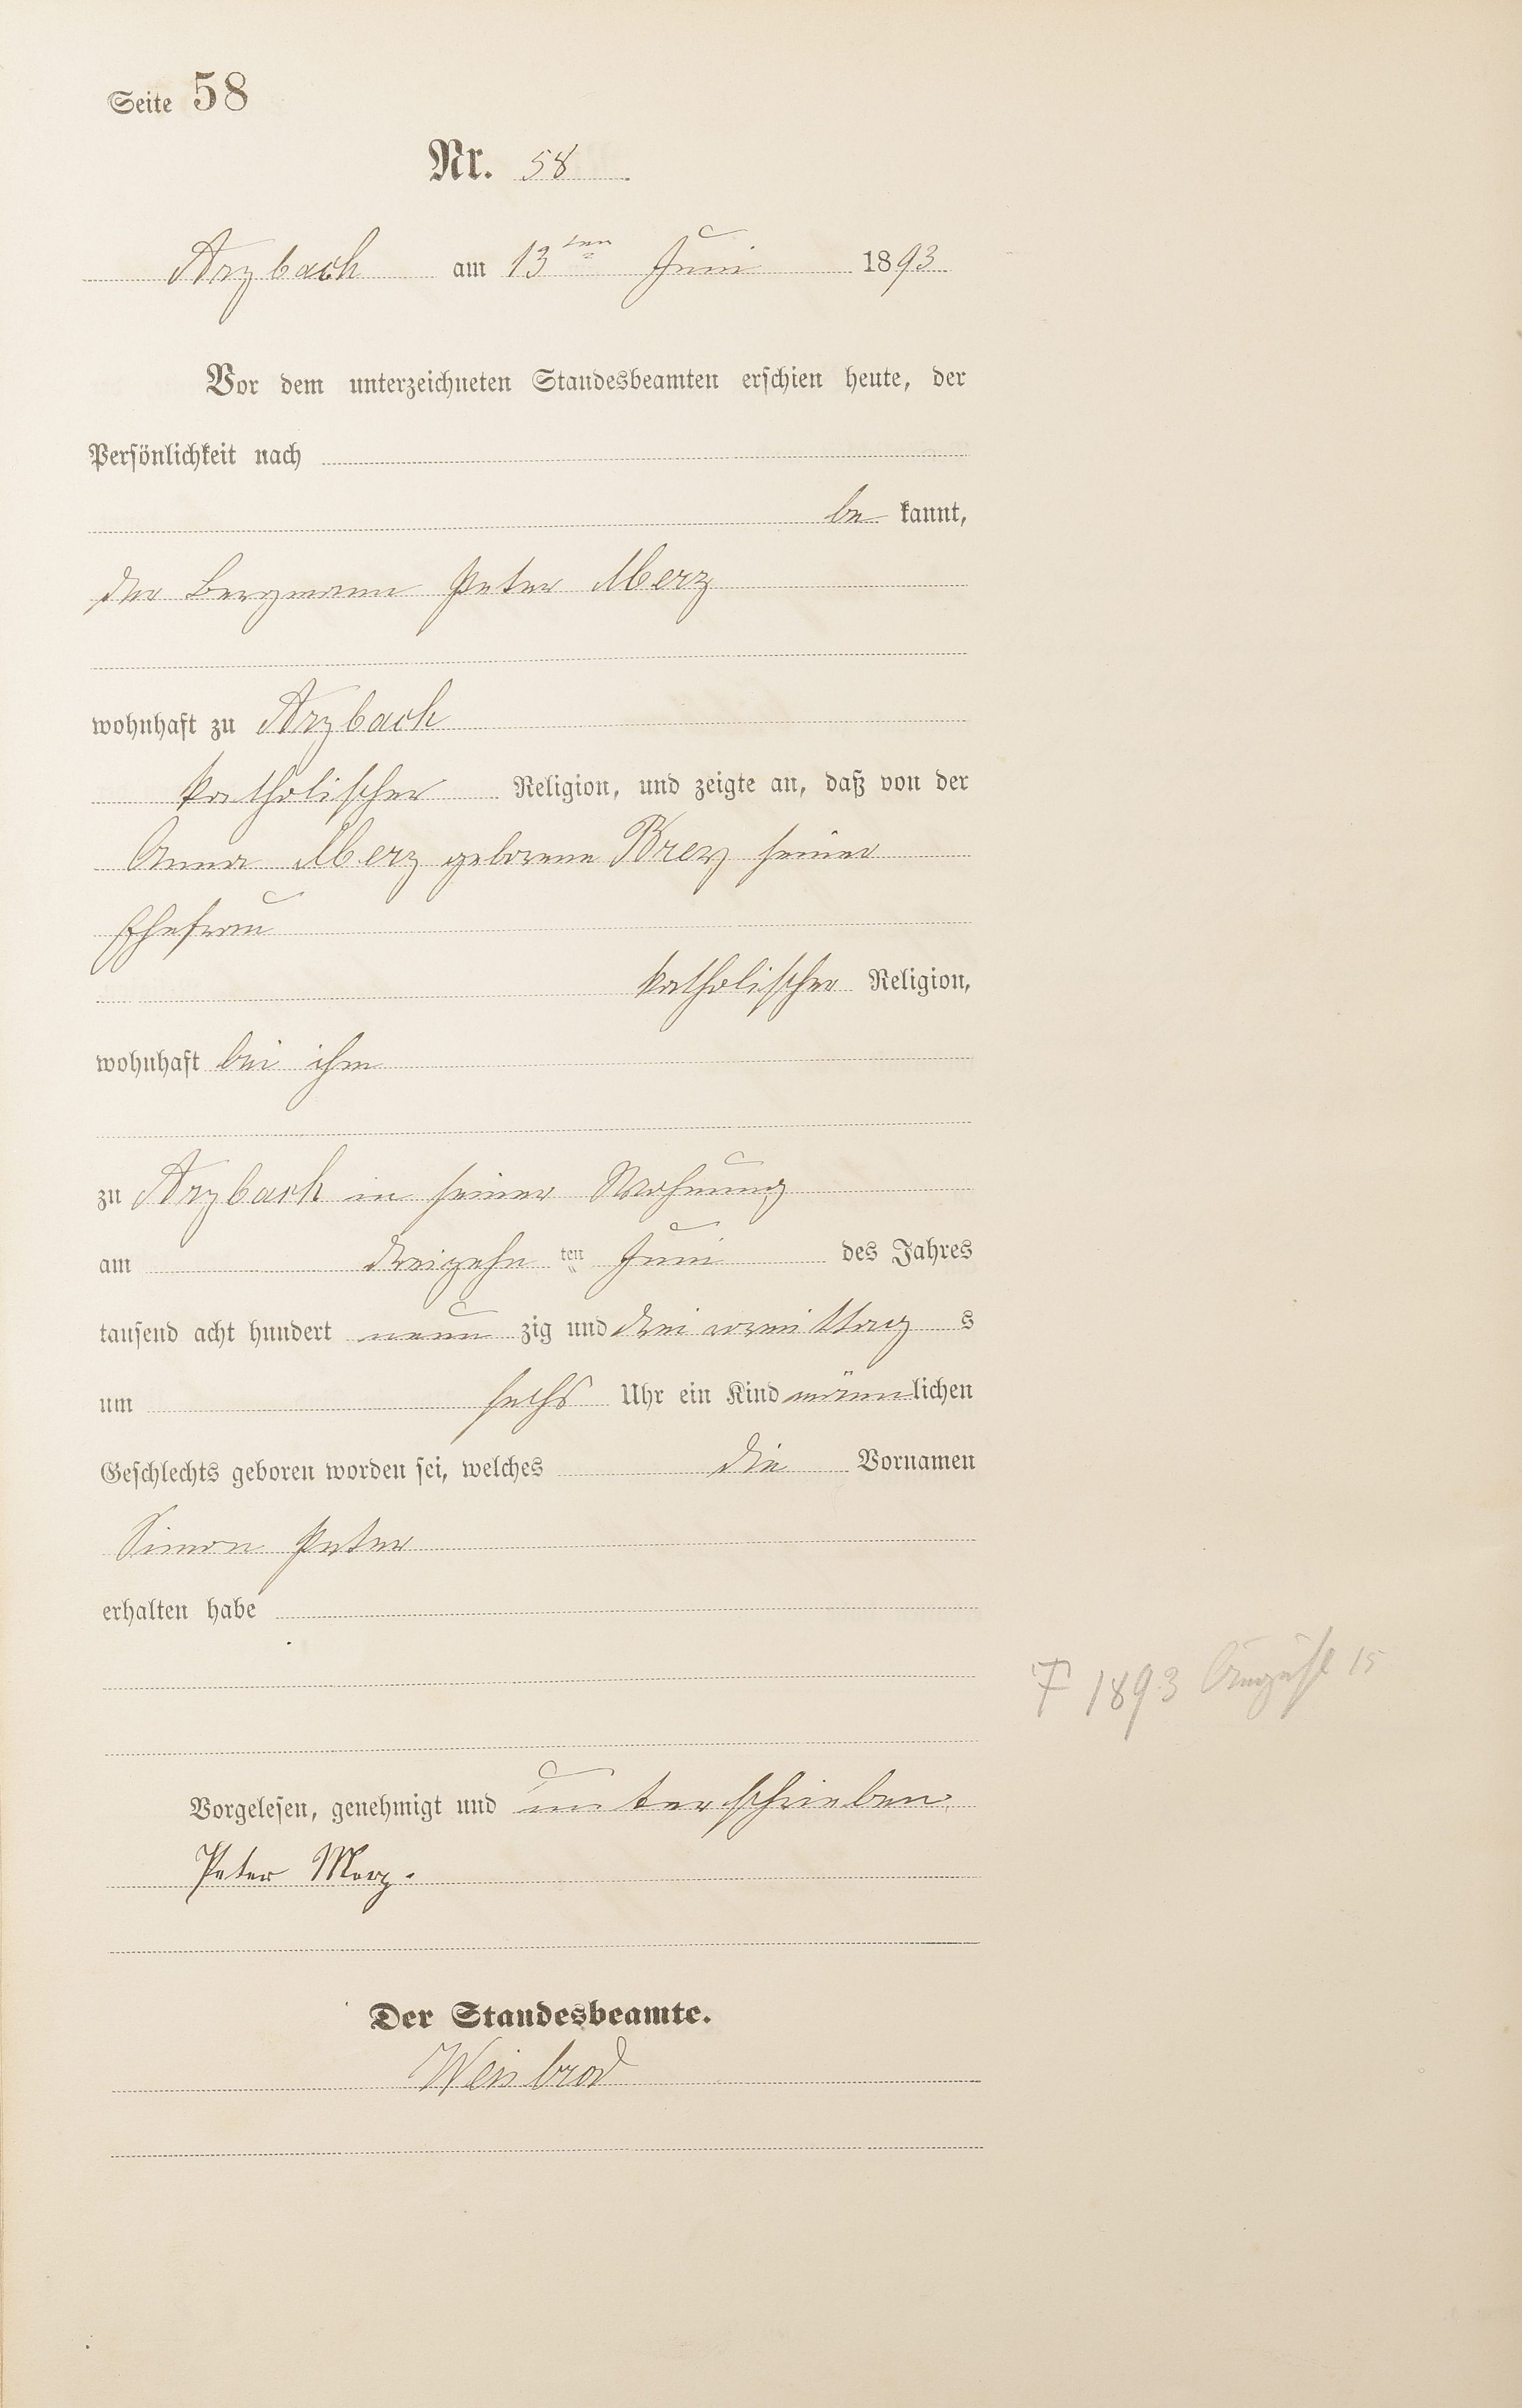 Seite 58
Nr. 58
Arzbach am 13ten Juni 1893
Vor dem unterzeichneten Standesbeamten erschien heute, der
Persönlichkeit nach
be kannt,
der Bergmann Peter Merz
wohnhaft zu Arzbach
katholischer Religion, und zeigte an, daß von der
Anna Merz geborene Brey seiner
Ehefrau
katholischer Religion,
wohnhaft bei ihm
zu Arzbach in seiner Wohnung
am dreizehn ten Juni des Jahres
tausend acht hundert neun zig und drei vormittag s
um sechs Uhr ein Kind männlichen
Geschlechts geboren worden sei, welches die Vornamen
Simon Peter
erhalten habe
† 1893 August 15
Vorgelesen, genehmigt und unterschrieben
Peter Merz.
Der Standesbeamte.
Weisbrod